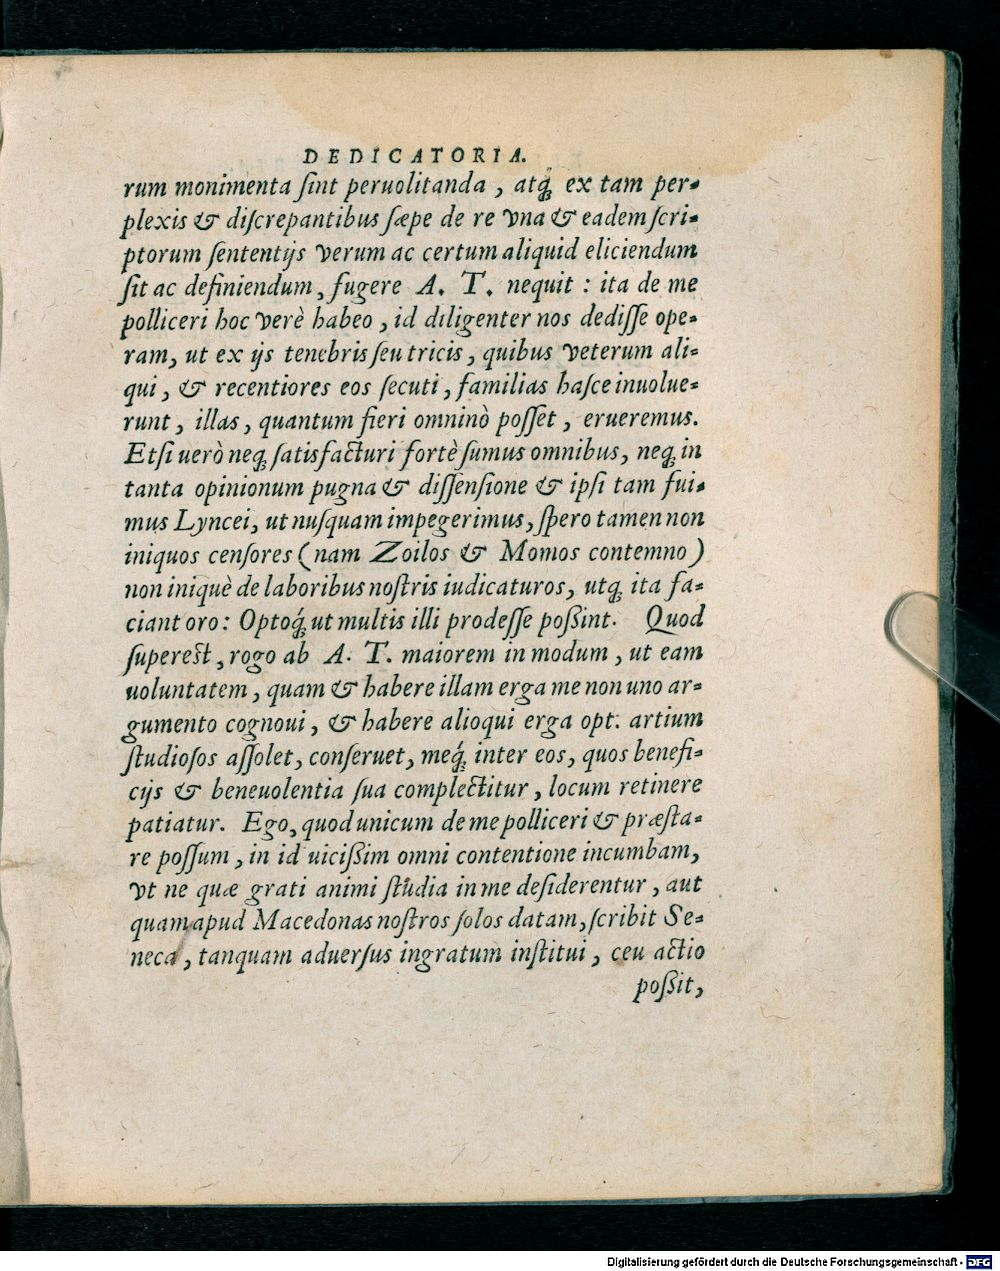 DEDICATORIA.
rum monimenta ſint peruolitanda, atq́; ex tam per-
plexis & diſcrepantibus ſæpe de re vna & eadem ſcri-
ptorum ſententijs verum ac certum aliquid eliciendum
ſit ac definiendum, fugere A. T. nequit: ita de me
polliceri hoc verè habeo, id diligenter nos dediſſe ope-
ram, ut ex ijs tenebris ſeu tricis, quibus veterum ali-
qui, & recentiores eos ſecuti, familias haſce inuolue-
runt, illas, quantum fieri omninò poſſet, erueremus.
Etſi uerò neq; ſatisfacturi fortè ſumus omnibus, neq; in
tanta opinionum pugna & diſſenſione & ipſi tam fui-
mus Lyncei, ut nuſquam impegerimus, ſpero tamen non
iniquos cenſores (nam Zoilos & Momos contemno)
non iniquè de laboribus noſtris iudicaturos, utq; ita fa-
ciant oro: Optoq́; ut multis illi prodeſſe poßint. Quod
ſupereſt, rogo ab A. T. maiorem in modum, ut eam
uoluntatem, quam & habere illam erga me non uno ar-
gumento cognoui, & habere alioqui erga opt. artium
ſtudioſos aſſolet, conſeruet, meq́; inter eos, quos benefi-
cijs & beneuolentia ſua complectitur, locum retinere
patiatur. Ego, quod unicum de me polliceri & præſta-
re poſſum, in id uicißim omni contentione incumbam,
vt ne quæ grati animi ſtudia in me deſiderentur, aut
quam apud Macedonas noſtros ſolos datam, ſcribit Se-
neca, tanquam aduerſus ingratum inſtitui, ceu actio
poßit,
Digitalisierung gefördert durch die Deutsche Forschungsgemeinschaft - DFG